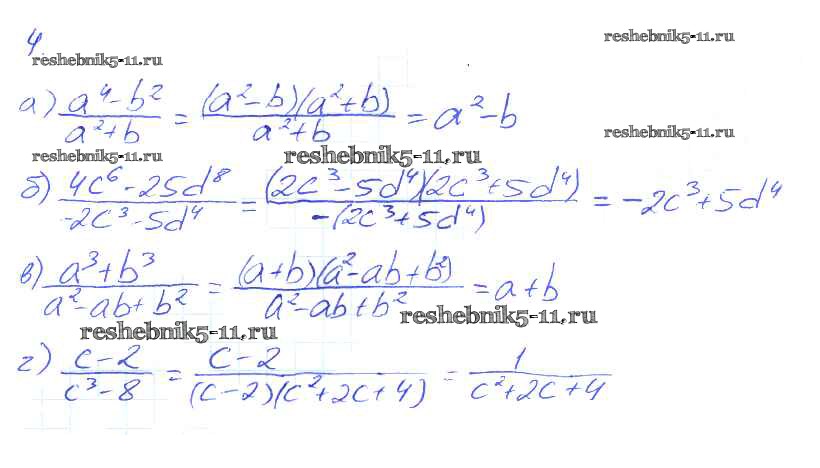 4.
reshebnik5-11.ru
reshebnik5-11.ru
а) (a⁴-b²)/(a²+b) = ((a²-b)(a²+b))/(a²+b) = a²-b
reshebnik5-11.ru
reshebnik5-11.ru
reshebnik5-11.ru
б) (4c⁶-25d⁸)/(-2c³-5d⁴) = ((2c³-5d⁴)(2c³+5d⁴))/(-(2c³+5d⁴)) = -2c³+5d⁴
в) (a³+b³)/(a²-ab+b²) = ((a+b)(a²-ab+b²))/(a²-ab+b²) = a+b
reshebnik5-11.ru
reshebnik5-11.ru
г) (c-2)/(c³-8) = (c-2)/((c-2)(c²+2c+4)) = 1/(c²+2c+4)